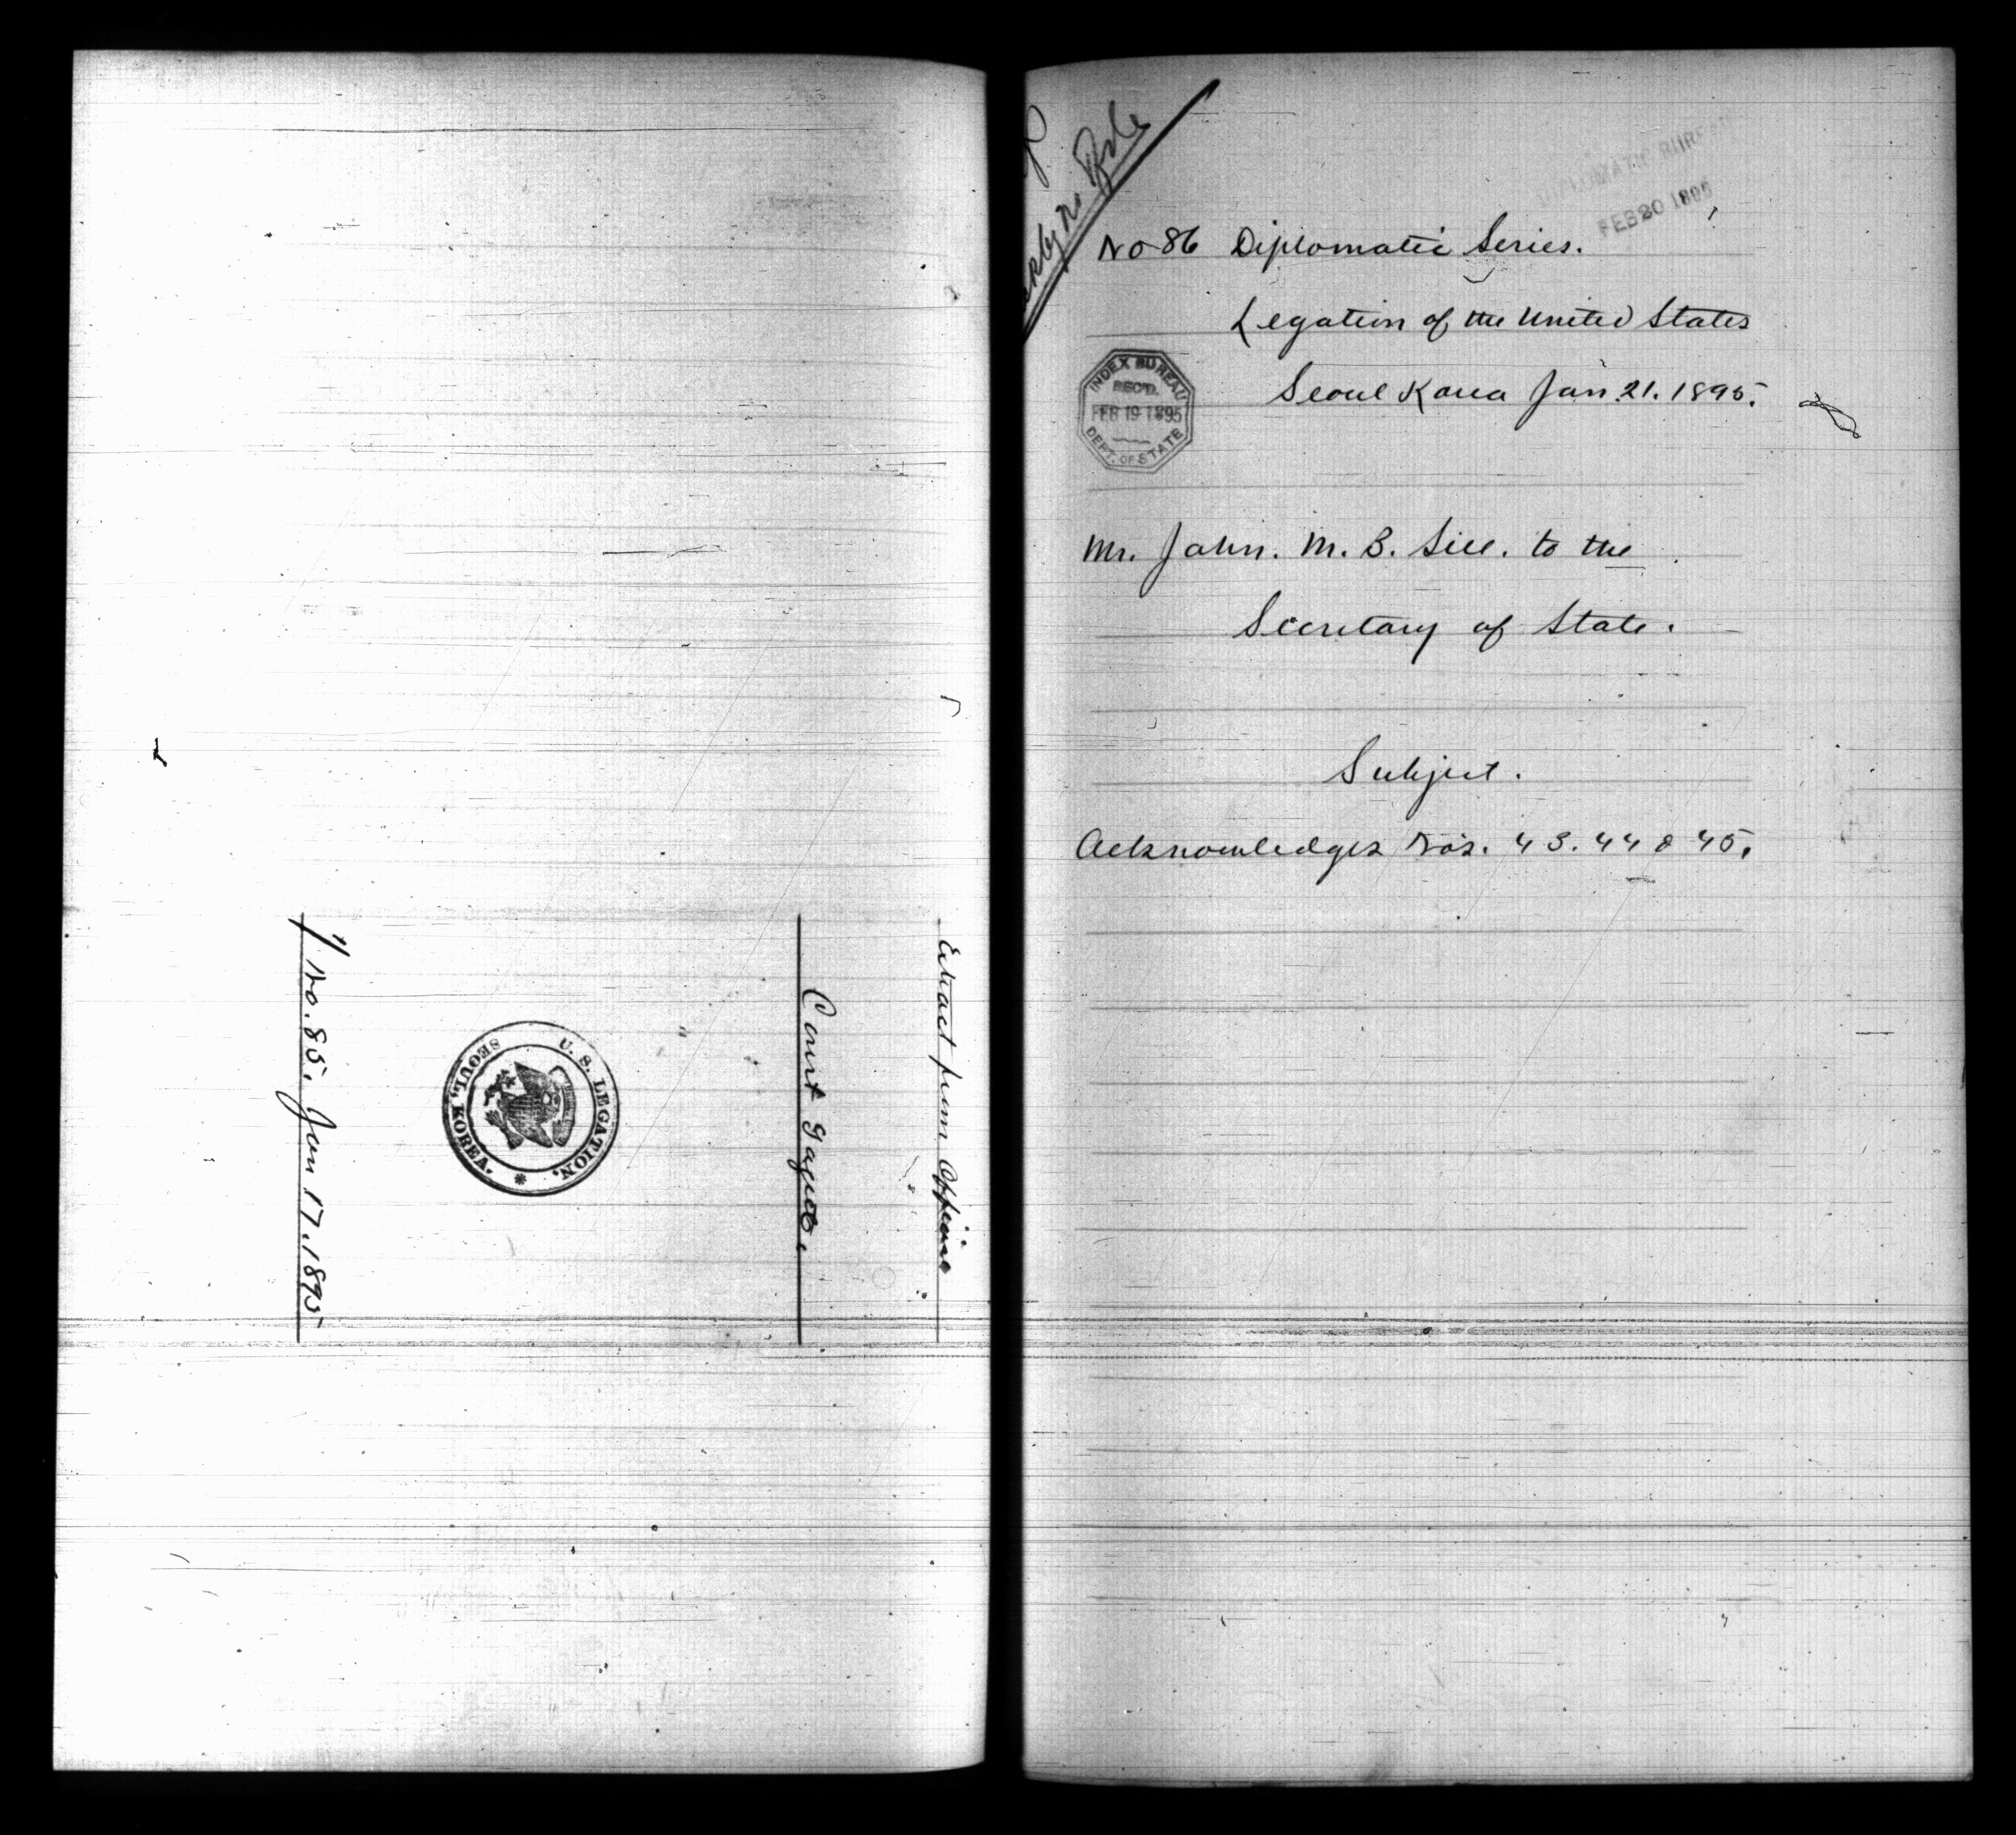 Extract from Official
Court Gazette.
U. S. LEGATION,
SEOUL, KOREA.
// No. 85. Jan 17. 1895
DIPLOMATIC BUREAU
FEB 20 1895
No 86 Diplomatic Series.
Legation of the United States
Seoul Korea Jan 21. 1895.
INDEX BUREAU
REC'D.
FEB 19 1895
DEPT. OF STATE
Mr. John. M. B. Sill. to the
Secretary of State.
Subject.
Acknowledges Nos. 43. 44 & 45.